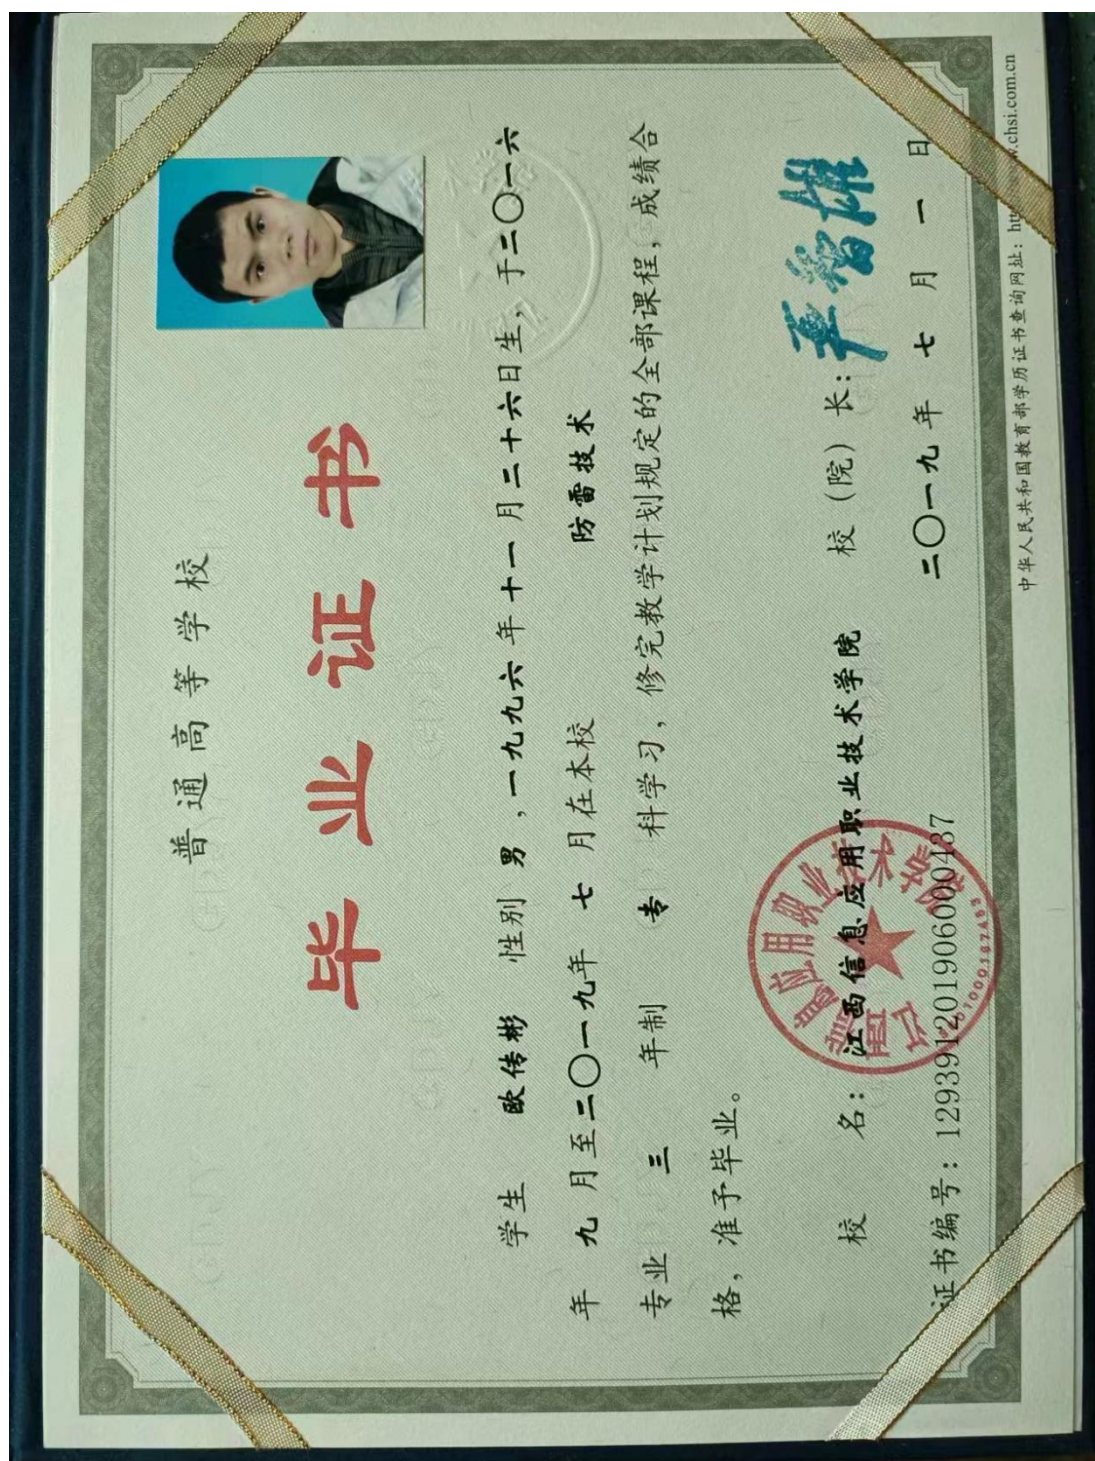 普通高等学校
毕业证书
学生 欧传彬 性别 男，一九九六年十一月二十六日生，于二〇一六
年 九 月至二〇一九年 七 月在本校 防雷技术
专业 三 年制 专 科学习，修完教学计划规定的全部课程，成绩合
格，准予毕业。
校 名：江西信息应用职业技术学院 校（院）长：
证书编号：129391201906000437
二〇一九年 七 月 一 日
中华人民共和国教育部学历证书查询网址：
.chsi.com.cn